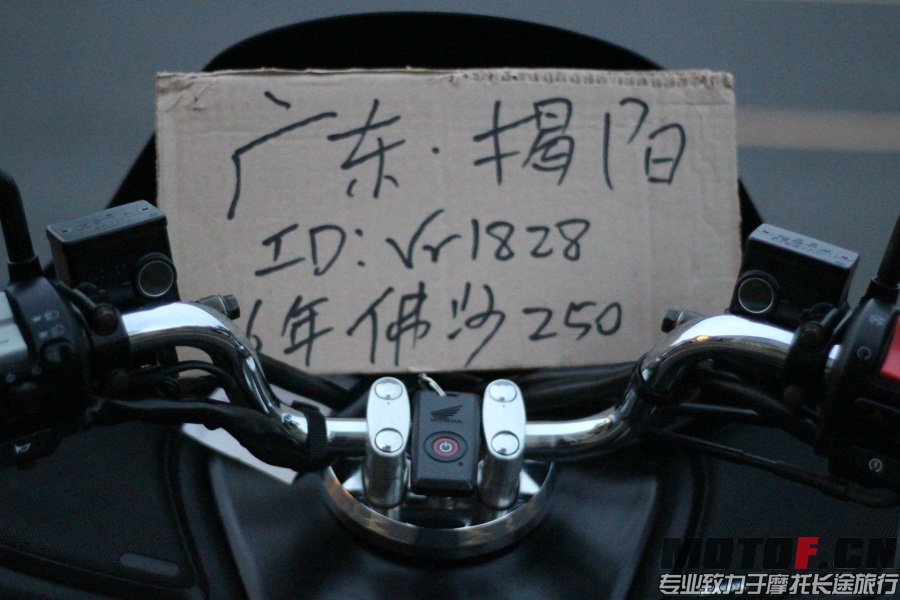 广东·揭阳
ID:Vr1828
6年佛沙250
HONDA
MOTOF.CN
专业致力于摩托长途旅行